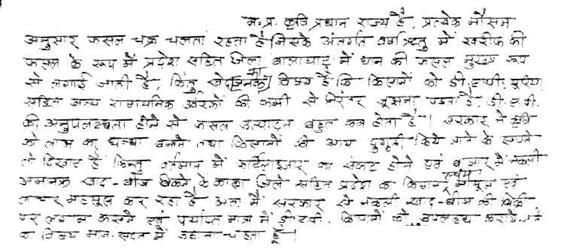 म.प्र. कृषि प्रधान राज्य है, प्रत्येक मौसम
अनुसार फसल चक्र चलता रहता है जिसके अंतर्गत वर्षा ऋतु में खरीफ की
फसल के रूप में प्रदेश सहित जिला बालाघाट में धान की फसल मुख्य रूप
से लगाई जाती है, किंतु खेदजनक का विषय है कि किसानों को डी.एपी. यूरिया
सहित अन्य रासायनिक उर्वरकों की कमी से निरंतर जूझना पड़ता है, डी.ए.पी.
की अनुपलब्धता होने से फसल उत्पादन बहुत कम होता है। सरकार ने कृषि
को लाभ का धन्धा बनाने तथा किसानों की आय दुगुनी किये जाने के सपने
तो दिखाए हैं किन्तु वर्तमान में का संकट होने एवं बाजार में नकली
अमानक खाद-बीज बिकने के कारण जिले सहित प्रदेश का किसान स्वयं एवं
लाचार महसूस कर रहा है अतः मैं सरकार से नकली खाद-बीज की बिक्री
पर लगाम कसने एवं पर्याप्त मात्रा में डी.एपी. किसानों को उपलब्ध कराये जाने
का विषय मान. सदन में उठाना चाहता हूँ।